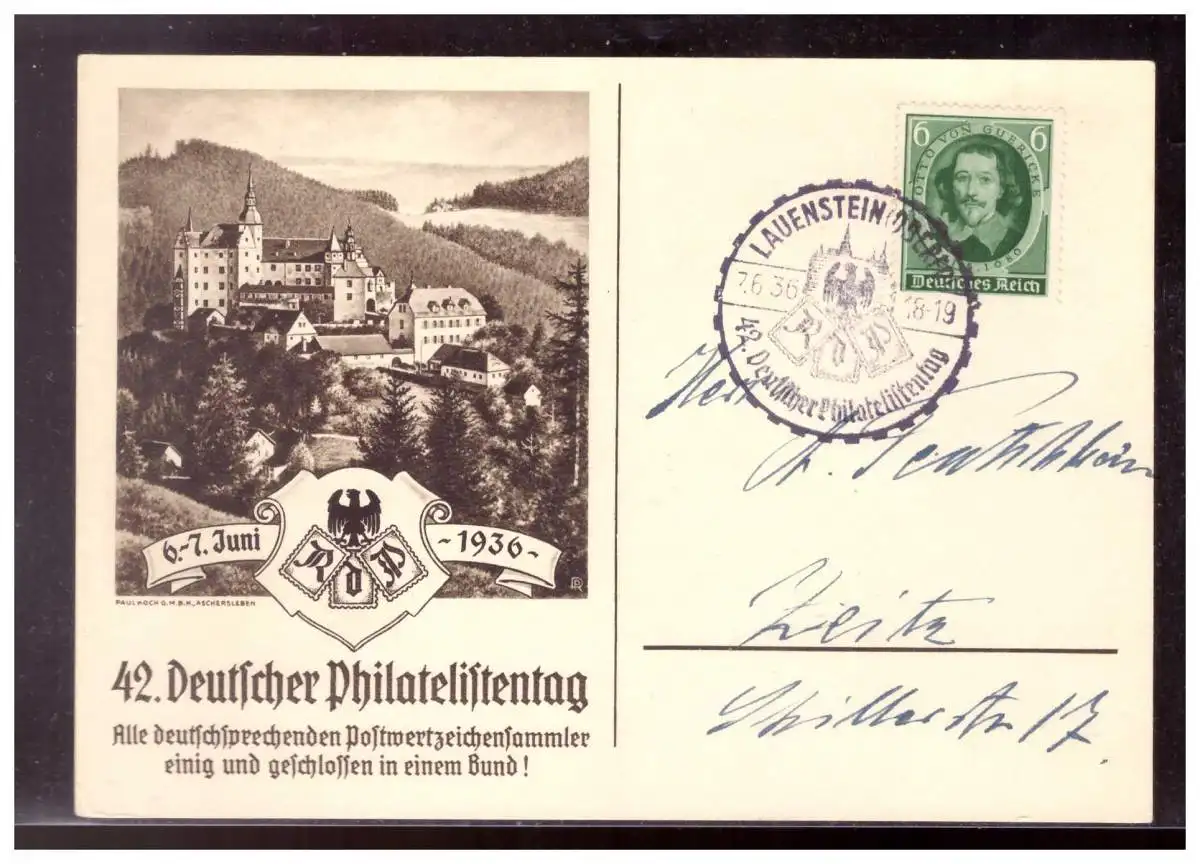 6.-7. Juni
- 1936 -
R d P
PR
PAUL KOCH G.M.B.H., ASCHERSLEBEN
42. Deutscher Philatelistentag
Alle deutschsprechenden Postwertzeichensammler
einig und geschlossen in einem Bund!
6 6
OTTO VON GUERICKE
1686
Deutsches Reich
LAUENSTEIN
7.6.36 18-19
R d P
42. Deutscher Philatelistentag
Herrn
Zeitz
Schillerstr 17.